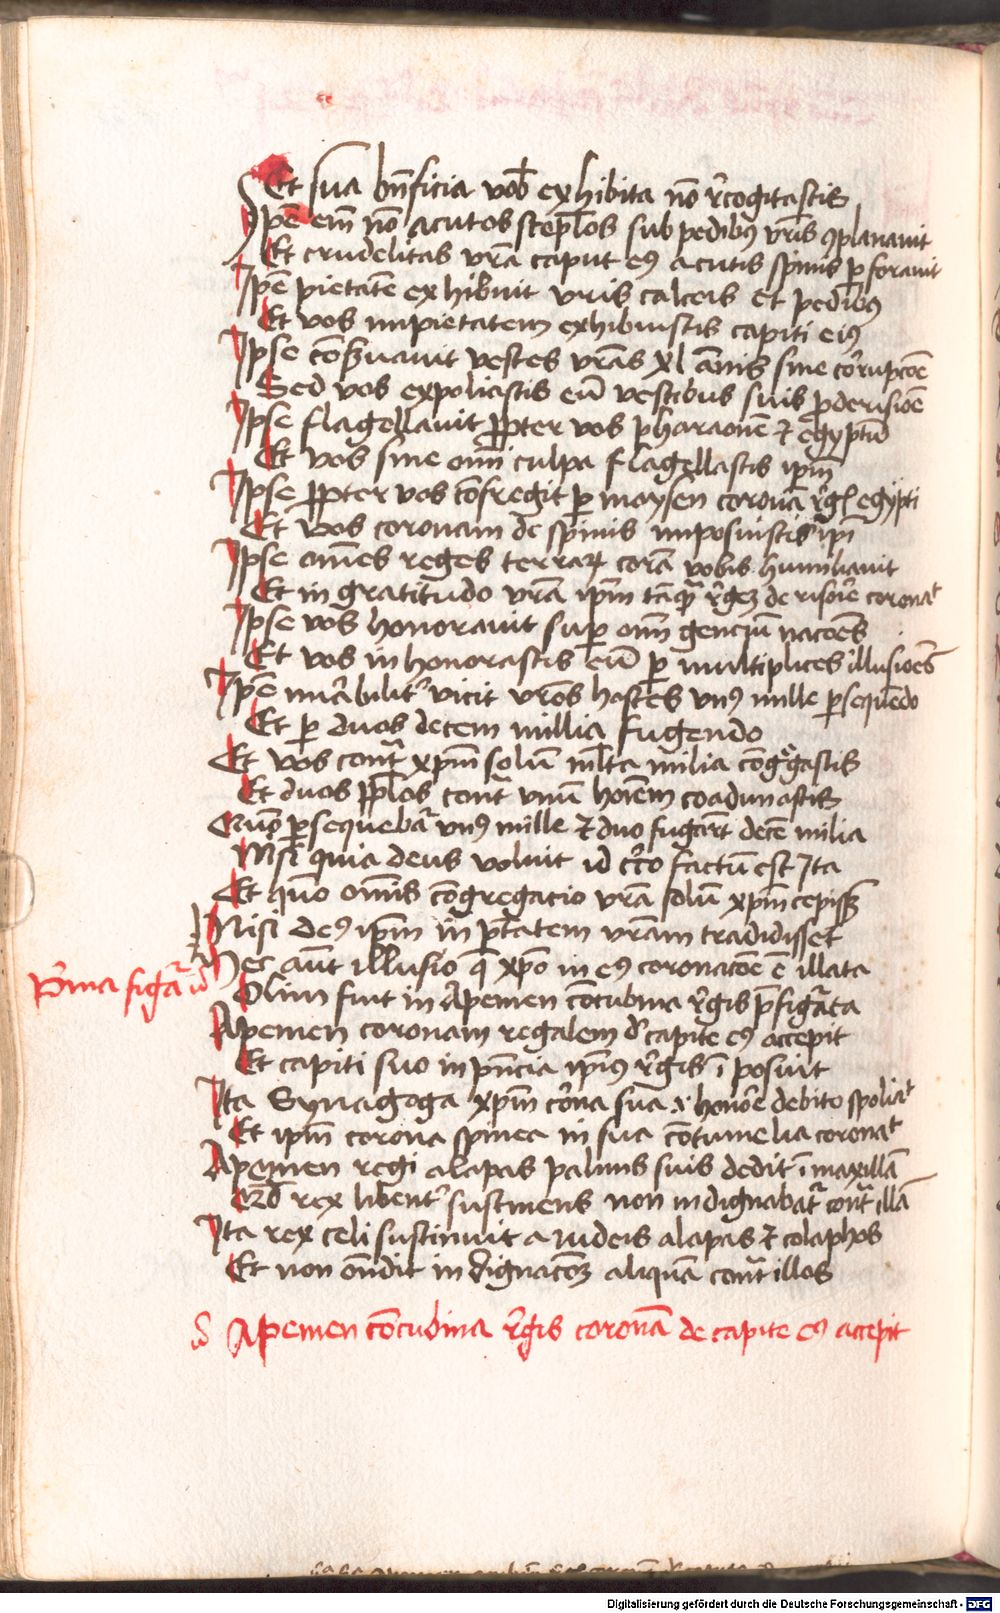 Et sua bn̄ficia vob̄ exhibita nō rͤcogitastis
Ip̄e em̄ nō acutos scop̄los sub pedibꝰ vr̄is ꝯplanauit
Et crudelitas vr̄a caput eiꝰ acutis spinis ꝑforauit
Ip̄e pietatē exhibuit vr̄is calceis et pedibꝰ
Et vos impietatem exhibuistis capiti eiꝰ
Ipse cōseruauit vestes vr̄as xl ānis sine corrupcōe
Sed vos expoliastis eū vestibus suis ꝓ derisiōe
Ipse flagellauit ꝓpter vos pharaonē ⁊ egyptū
Et vos sine om̄i culpa flagellastis ip̄m
Ipse ꝓpter vos cōfregit ꝑ moysen coronā rͤgis egypti
Et vos coronam de spinis imposuistis ip̄i
Ipse om̄es reges terraꝝ corā vobis humiliauit
Et ingratitudo vr̄a ip̄m tāꝙ rͤgē de risorie coronat
Ipse vos honorauit suꝑ om̄ genciū nacōes
Et vos inhonorastis eū ꝑ multiplices illusiōes
Ip̄e mirabilitͬ vicit vr̄os hostes vnꝰ mille ꝑsequēdo
Et ꝑ duos decem millia fugendo
Et vos contͣ xp̄m solū ml̄ta milia cōgregastis
Et duos pp̄los contͣ vnū hoīem coadunastis
Quō ꝑsequebatͬ vnꝰ mille ⁊ duo fugarēt decē milia
Nisi quia deus voluit id circo factū est Ita
Et quō om̄is cōgregacio vr̄a solū xp̄m cepissꝫ
Nisi deꝰ ip̄m in p̄tatem vr̄am tradidisset
Hec aūt illusio q̄ xp̄o in eiꝰ coronacōe ē illata
Pͥma figͣa id̄
Olim fuit in Apemen cōcubina rͤgis p̄figͣata
Apemen coronam regalem de capite eiꝰ accepit
Et capiti suo in pn̄cia ipiꝰ rͤgis īposuit
Ita Synagoga xp̄m corona sua .i. honore debito spoliat
Et ip̄m corona spinea in sua cōtumelia coronat
Apemen regi alapas palmis suis dedit ī maxillā
Qd̄ rex libentͬ sustinens non indignabatͬ contͣ illā
Ita rex celi sustinuit a iudeis alapas ⁊ colaphos
Et non on̄dit indignacōꝫ aliquā contͣ illos
Apemen cōcubina rͤgis coronā de capite eiꝰ accepit
Digitalisierung gefördert durch die Deutsche Forschungsgemeinschaft - DFG